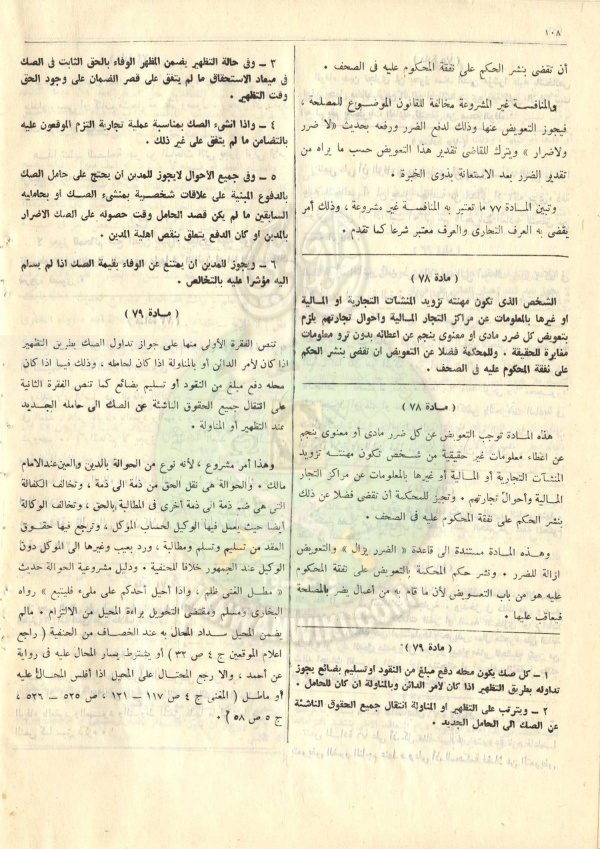 ١٠٨
أن تقضى بنشر الحكم على نفقة المحكوم عليه فى الصحف .
والمنافسة غير المشروعة مخالفة للقانون الموضوع للمصلحة ،
فيجوز التعويض عنها وذلك لدفع الضرر ورفعه بحديث «لا ضرر
ولاضرار » ويترك للقاضى تقدير هذا التعويض حسب ما يراه من
تقدير الضرر بعد الاستعانة بذوى الخبرة .
وتبين المادة ٧٧ ما تعتبر به المنافسة غير مشروعة ، وذلك أمر
يقضى به العرف التجارى والعرف معتبر شرعا كما تقدم .
( مادة ٧٨ )
الشخص الذى تكون مهنته تزويد المنشآت التجارية أو المالية
او غيرها بالمعلومات عن مراكز التجار المالية واحوال تجارتهم يلزم
بتعويض كل ضرر مادى او معنوى ينجم عن اعطائه بدون ترو معلومات
مغايرة للحقيقة . وللمحكمة فضلا عن التعويض ان تقضى بنشر الحكم
على نفقة المحكوم عليه فى الصحف .
( مادة ٧٨ )
هذه المادة توجب التعويض عن كل ضرر مادى أو معنوى ينجم
عن اعطاء معلومات غير حقيقية من شخص تكون مهنته تزويد
المنشآت التجارية أو المالية أو غيرها بالمعلومات عن مراكز التجار
المالية وأحوال تجارتهم . وتجيز للمحكمة أن تقضى فضلا عن ذلك
بنشر الحكم على نفقة المحكوم عليه فى الصحف .
وهذه المادة مستندة الى قاعدة « الضرر يزال » والتعويض
ازالة للضرر . ونشر حكم المحكمة بالتعويض على نفقة المحكوم
عليه هو من باب التعويض لأن ما قام به من أعمال يضر بالمصلحة
فيعاقب عليها .
( مادة ٧٩ )
١ – كل صك يكون محله دفع مبلغ من النقود اوتسليم بضائع يجوز
تداوله بطريق التظهير اذا كان لامر الدائن وبالمناولة ان كان للحامل .
٢ – ويترتب على التظهير او المناولة انتقال جميع الحقوق الناشئة
عن الصك الى الحامل الجديد .
٣ – وفى حالة التظهير يضمن المظهر الوفاء بالحق الثابت فى الصك
فى ميعاد الاستحقاق ما لم يتفق على قصر الضمان على وجود الحق
وقت التظهير .
٤ – واذا انشىء الصك بمناسبة عملية تجارية التزم الموقعون عليه
بالتضامن ما لم يتفق على غير ذلك .
٥ – وفى جميع الاحوال لايجوز للمدين ان يحتج على حامل الصك
بالدفوع المبنية على علاقات شخصية بمنشىء الصك او بحامليه
السابقين ما لم يكن قصد الحامل وقت حصوله على الصك الاضرار
بالمدين او كان الدفع يتعلق بنقص اهلية المدين .
٦ – ويجوز للمدين ان يمتنع عن الوفاء بقيمة الصك اذا لم يسلم
اليه مؤشرا عليه بالتخالص .
( مادة ٧٩ )
تنص الفقرة الأولى منها على جواز تداول الصك بطريق التظهير
اذا كان لأمر الدائن أو بالمناولة اذا كان لحامله ، وذلك فيما اذا كان
محله دفع مبلغ من النقود أو تسليم بضائع كما تنص الفقرة الثانية
على انتقال جميع الحقوق الناشئة عن الصك الى حامله الجديد
عند التظهير أو المناولة .
وهذا أمر مشروع ، لأنه نوع من الحوالة بالدين والعين عند الامام
مالك . والحوالة هى نقل الحق من ذمة الى ذمة ، وتخالف الكفالة
التى هى ضم ذمة الى ذمة أخرى فى المطالبة بالحق ، وتخالف الوكالة
أيضا حيث يعمل فيها الوكيل لحساب الموكل ، وترجع فيها حقوق
العقد من تسليم وتسلم ومطالبة ، ورد بعيب وغيرها الى الموكل دون
الوكيل عند الجمهور خلافا للحنفية . ودليل مشروعية الحوالة حديث
« مطل الغنى ظلم ، واذا أحيل أحدكم على ملىء فليتبع » رواه
البخارى ومسلم ومقتضى التحويل براءة المحيل من الالتزام . مالم
يضمن المحيل سداد المحال به عند الخصاف من الحنفية ( راجع
اعلام الموقعين ج ٤ ص ٣٢ ) أو يشترط يسار المحال عليه فى رواية
عن أحمد ، والا رجع المحتال على المحيل اذا أفلس المحال عليه
أو ماطل ( المغنى ج ٤ ص ١١٧ – ١٢١ ، ص ٥٢٥ – ٥٢٦ ،
ج ٥ ص ٥٨ ) .